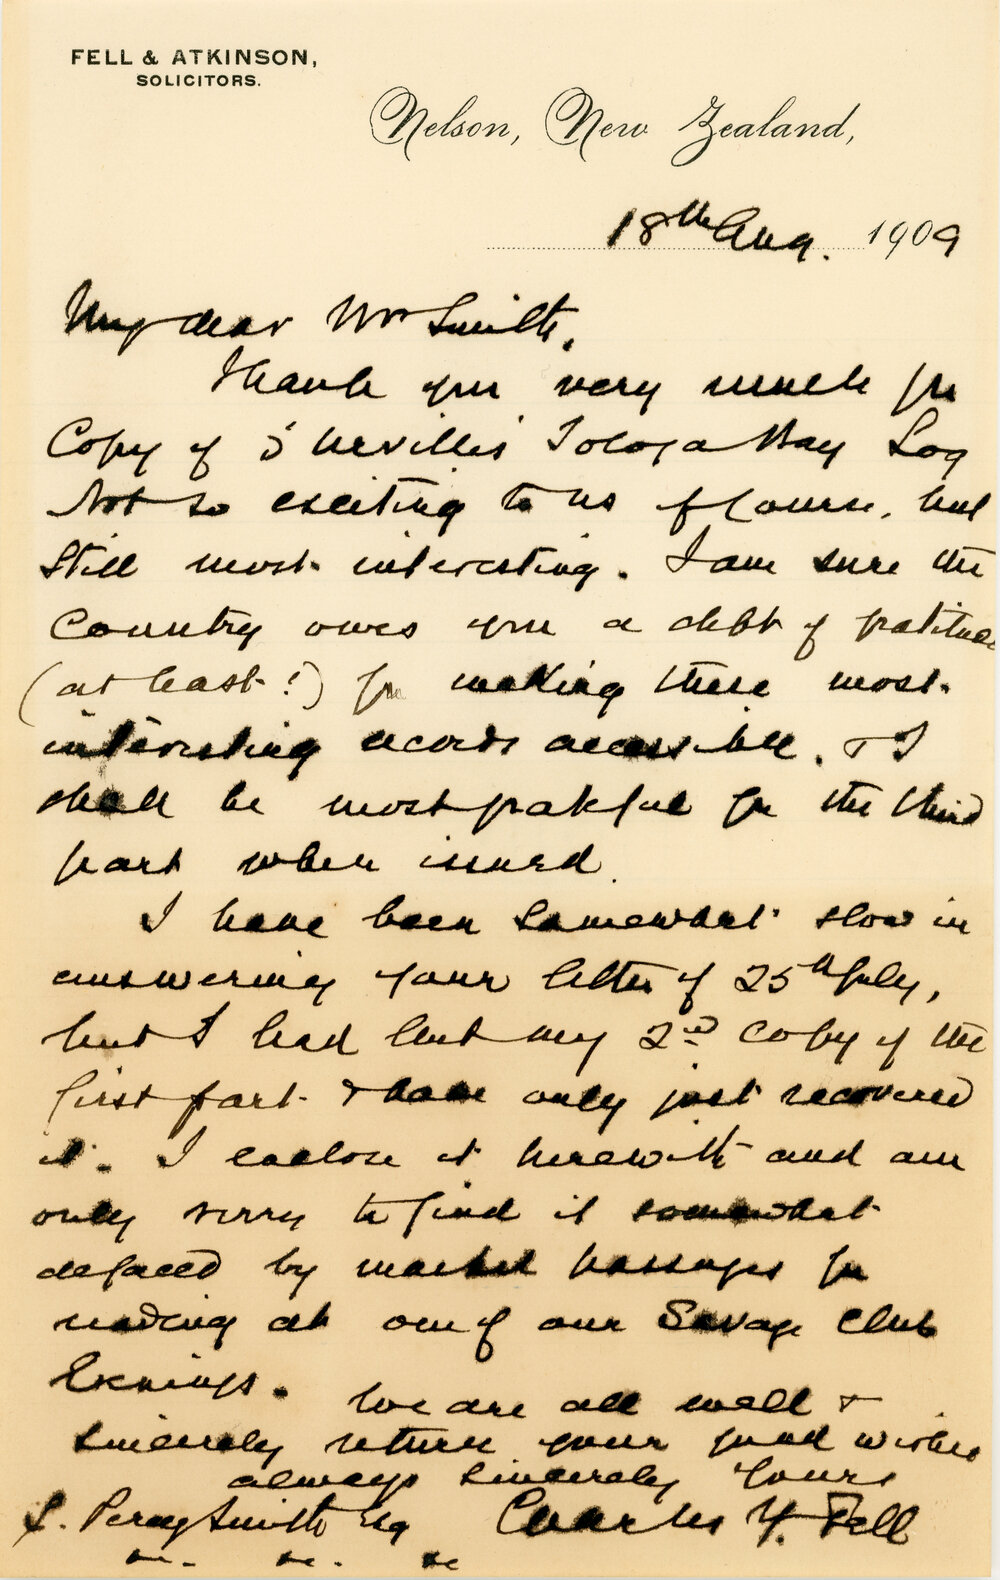 FELL & ATKINSON,
SOLICITORS.
Nelson, New Zealand,
18th Aug. 1909
My dear Mr Smith,
Thank you very much for
Copy of D'Urville's Tologa Bay Log
Not so exciting to us of course, but
still most interesting. I am sure the
Country owes you a debt of gratitude
(at least!) for making these most
interesting records accessible. & I
shall be most grateful for the third
part when issued.
I have been somewhat slow in
answering your letter of 25th July,
but I had lent my 2nd copy of the
first part & have only just recovered
it. I enclose it herewith and am
only sorry to find it somewhat
defaced by marked passages for
reading at one of our Savage Club
Evenings. We are all well &
sincerely return your good wishes
always sincerely yours
S. Percy Smith Esq Charles Y. Fell